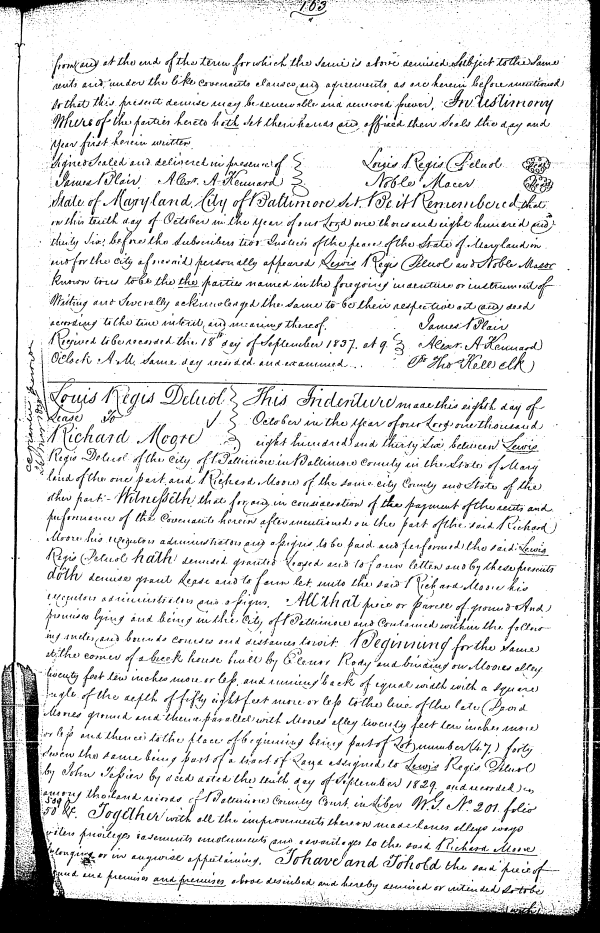 103
from and at the end of the term for which the same is above demised subject to the same
rents and under the like covenants clauses and agreements as are herein before mentioned
so that this present demise may be renewable and renewed forever. In testimony
Whereof the parties hereto both set their hands and affixed their seals the day and
year first herein written
Signed Sealed and delivered in presence of Louis Regis Deluol
James Blair Alexr. A. Kennard Noble Macer
State of Maryland, City of Baltimore Sct. Be it Remembered, that
on this tenth day of October in the year of our Lord one thousand eight hundred and
thirty six, before the Subscribers two Justices of the peace of the State of Maryland in
and for the city aforesaid personally appeared Lewis Regis Deluol and Noble Macer
known to us to be the the parties named in the foregoing indenture or instrument of
Writing and Severally acknowledged the same to be their respective act and deed
according to the true intent and meaning thereof. James Blair
Received to be recorded the 18th day of September 1837. at 9 Alexr. A. Kennard
OClock A.M. Same day recorded and examined Pr Tho Kell clk
Louis Regis Deluol This Indenture made this eighth day of
Lease To October in the Year of our Lord one thousand
Richard Moore eight hundred and thirty six between Lewis
Regis Deluol of the City of Baltimore in Baltimore County in the State of Mary
land of the one part and Richard Moore of the same city County and State of the
other part. Witnesseth that for and in consideration of the payment of the rents and
performance of the Covenants herein after mentioned on the part of the said Richard
Moore his executors administrators and assigns to be paid and performed the said Lewis
Regis Deluol hath demised granted Leased and to farm letten and by these presents
doth demise grant Lease and to farm let unto the said Richard Moore his
executors administrators and assigns. All that piece or parcel of ground And
premises lying and being in the City of Baltimore and Contained within the follow
ing metes and bounds courses and distances towit. Beginning for the same
at the corner of a brick house built by Elenor Rody and binding on Moores alley
twenty feet ten inches more or less, and running back of equal width with a square
angle of the depth of fifty eight feet more or less to the line of the late David
Moores ground and then parallel with Moores alley twenty feet ten inches more
or less and thence to the place of beginning being part of Lot number (47) forty
seven the same being part of a tract of Land assigned to Lewis Regis Deluol
by John Tessier by deed dated the tenth day of September 1829 and recorded in
among the land records of Baltimore County Court in Liber W.G. No. 201. folio
509 &c. Together with all the improvements thereon made lanes alleys ways
waters privileges easements emoluments and advantages to the said Richard Moore
belonging or in anywise appertaining. To have and To hold the said piece of
ground and premises and premises above described and hereby demised or intended so to be
(with)